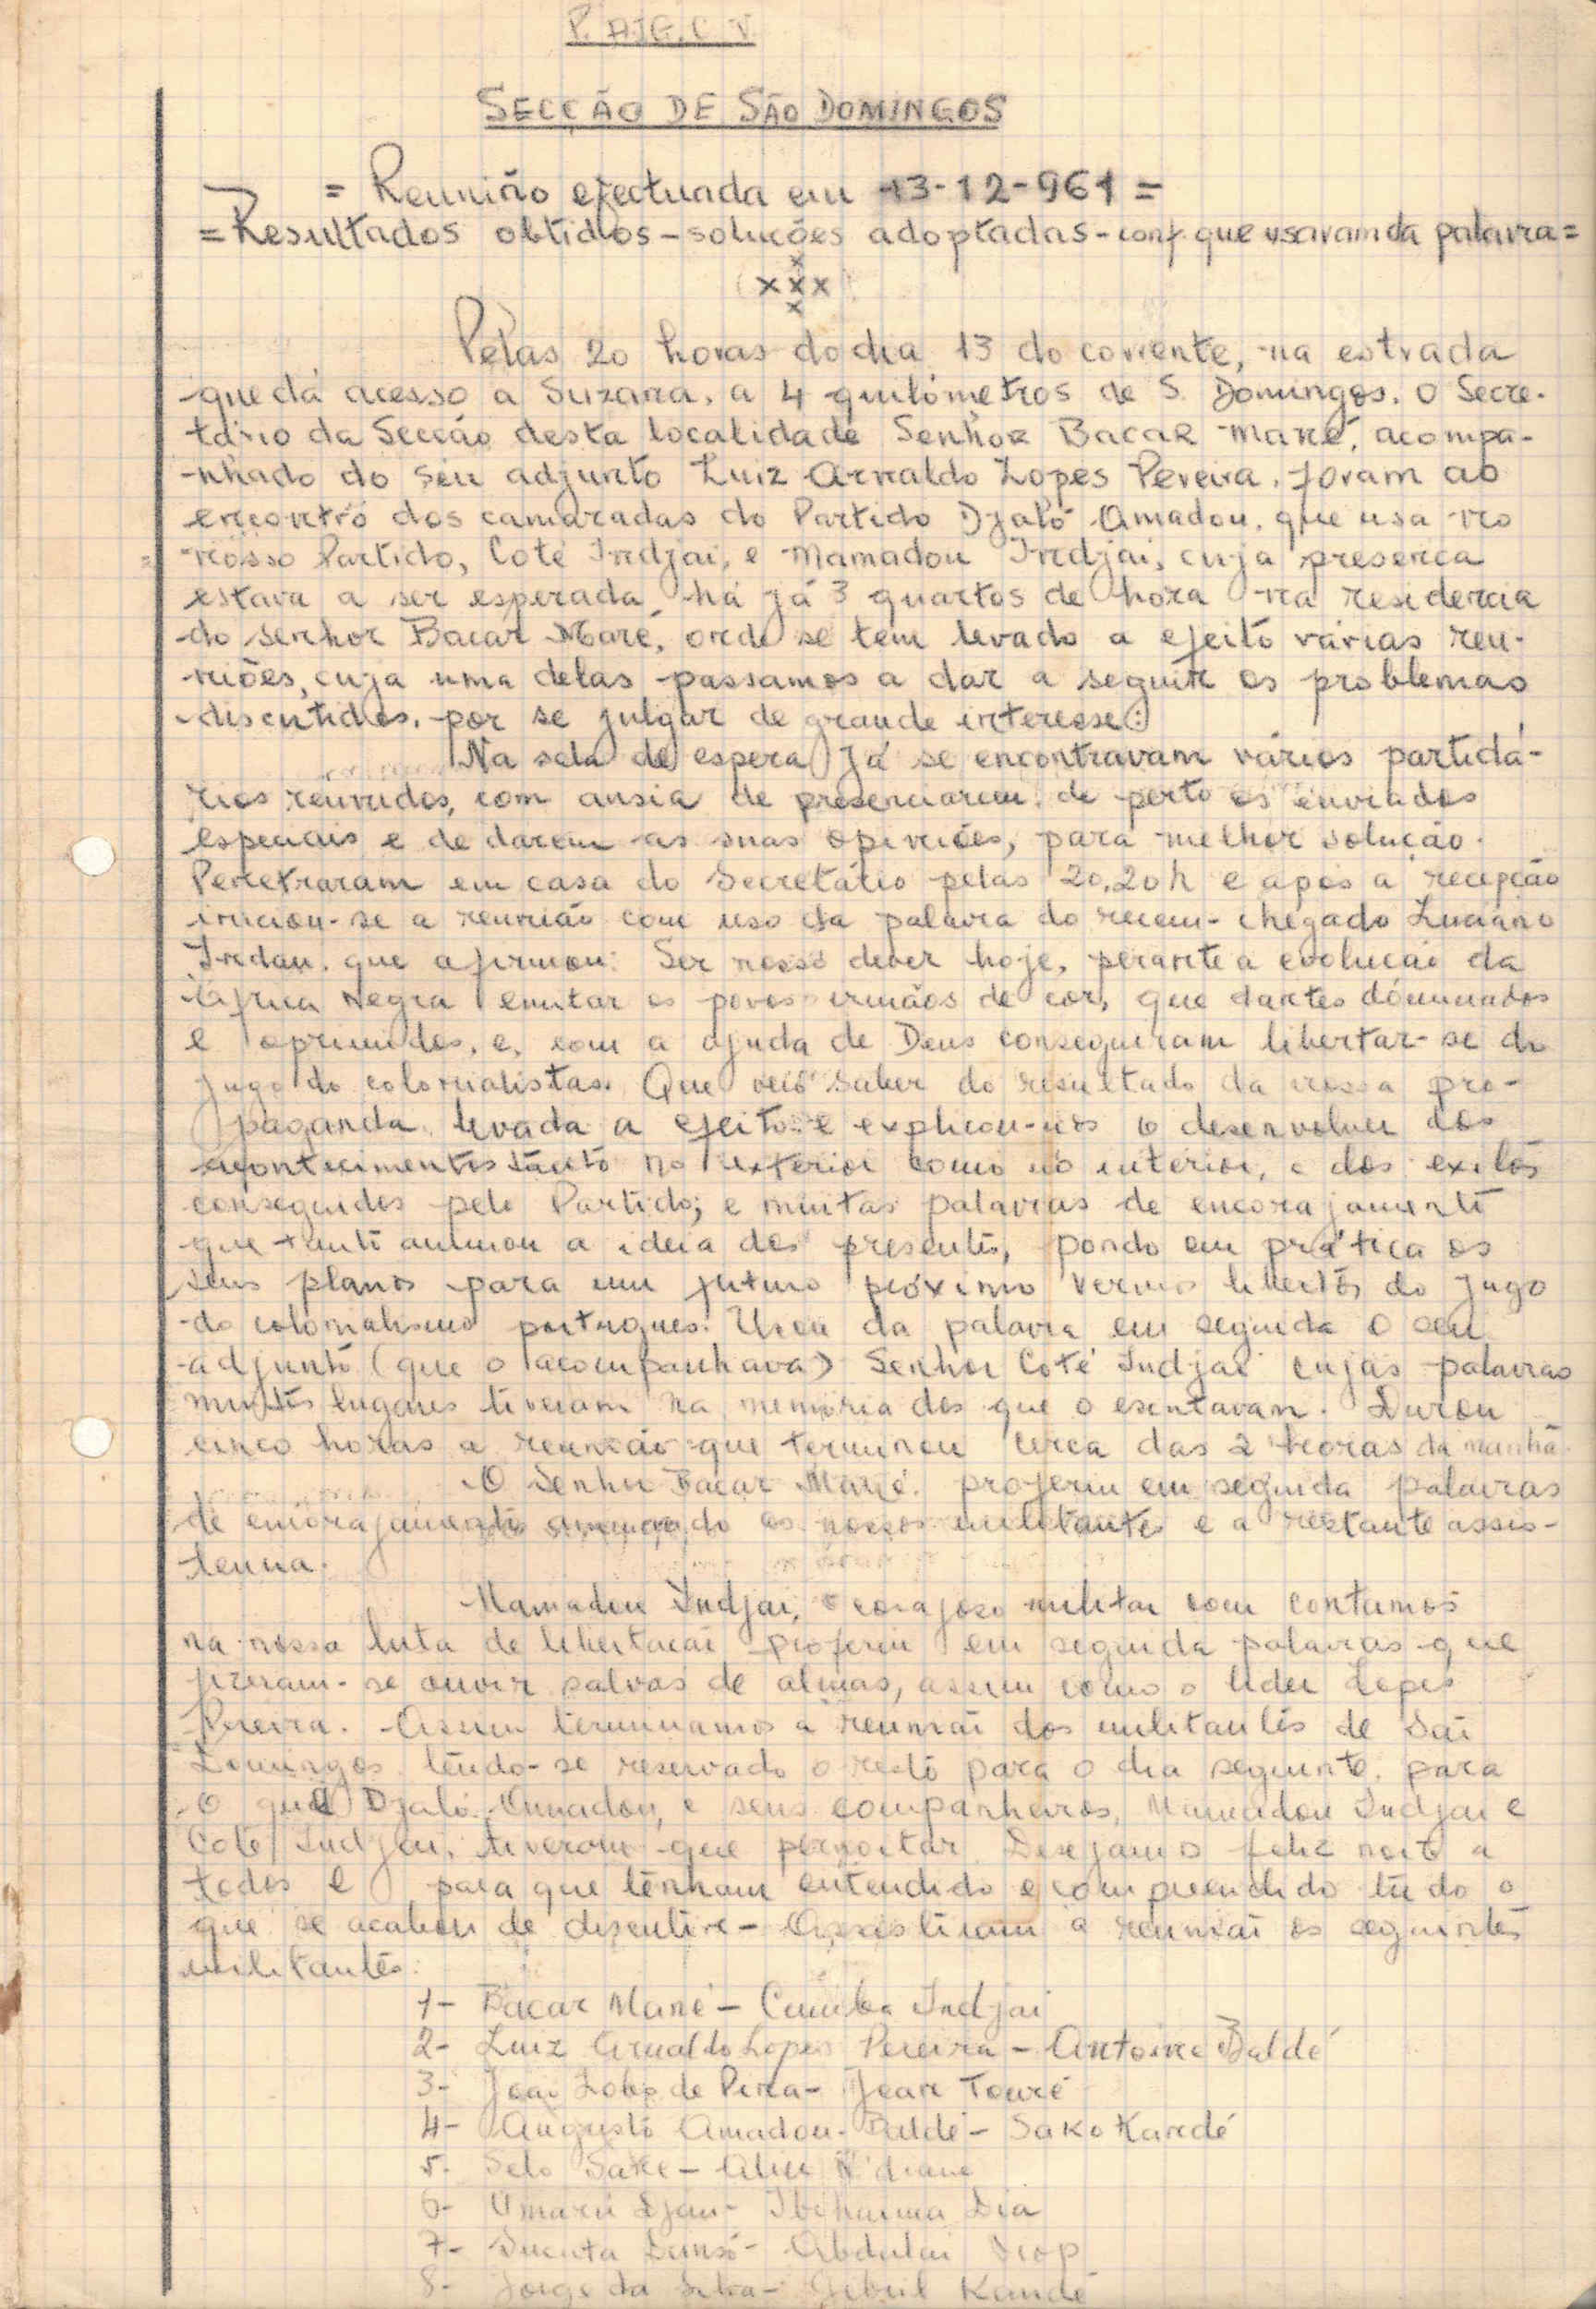 P.A.I.G.C.V.
SECCÃO DE SÃO DOMINGOS
= Reunião efectuada em 13-12-961 =
= Resultados obtidos - soluções adoptadas - conf. que usaram da palavra =
x
x x x
x
Pelas 20 horas do dia 13 do corrente, na estrada
que dá acesso a Suzana, a 4 quilómetros de S. Domingos, o Secre-
tário da Secção desta localidade Senhor Bacar Mané, acompa-
nhado do seu adjunto Luiz Arnaldo Lopes Pereira, foram ao
encontro dos camaradas do Partido Djaló Amadou, que usa no
nosso Partido, Coté Indjai, e Mamadou Indjai, cuja presença
estava a ser esperada há já 3 quartos de hora na residencia
do senhor Bacar Mané, onde se tem levado a efeito várias reu-
niões, cuja uma delas passamos a dar a seguir os problemas
discutidos, por se julgar de grande interesse:
Na sala de espera já se encontravam vários partidá-
rios reunidos, com ansia de presenciarem de perto os enviados
especiais e de darem as suas opiniões, para melhor solução.
Penetraram em casa do Secretário pelas 20,20h e após a recepção
iniciou-se a reunião com uso da palavra do recem-chegado Luciano
Indau, que afirmou: Ser nosso dever hoje, perante a evolução da
África Negra emitar os povos irmãos de cor, que dantes dominados
e oprimidos, e, com a ajuda de Deus conseguiram libertar-se do
jugo do colonialistas. Que veio saber do resultado da nossa pro-
paganda levada a efeito e explicou-nos o desenvolver dos
acontecimentos tanto no exterior como no interior, e dos exitos
conseguidos pelo Partido; e muitas palavras de encorajamento
que tanto animou a ideia dos presentes, pondo em prática os
seus planos para um futuro próximo vermos libertos do jugo
do colonialismo portugues. Usou da palavra em seguida o seu
adjunto (que o acompanhava) Senhor Coté Indjai cujas palavras
muitos lugares tiveram na memória dos que o escutavam. Durou
cinco horas a reunião que terminou cerca das 2 horas da manhã.
O Senhor Bacar Mané, proferiu em seguida palavras
de encorajamento animando os nossos militantes e a restante assis-
tencia.
Mamadou Indjai, o corajoso militar com contamos
na nossa luta de libertação proferiu em seguida palavras que
fizeram-se ouvir salvas de almas, assim como o lider Lopes
Pereira. Assim terminamos a reunião dos militantes de São
Domingos tendo-se reservado o resto para o dia seguinte, para
o que Djaló Amadou, e seus companheiros, Mamadou Indjai e
Coté Indjai, tiveram que pernoitar. Desejamos feliz noite a
todos e para que tenham entendido e compreendido tudo o
que se acabou de discutir. - Assistiram a reunião os seguintes
militantes:
1- Bacar Mané - Cumba Indjai
2- Luiz Arnaldo Lopes Pereira - Antoine Baldé
3- João Lobo de Pina - Jean Touré
4- Augusto Amadou Baldé - Sako Kandé
5- Selo Sake - Aliu N'diane
6- Umaru Djau - Ibrhaima Dia
7- Sucuta Dansó - Abdulai Diop
8- Jorge da Silva - Gebril Kandé